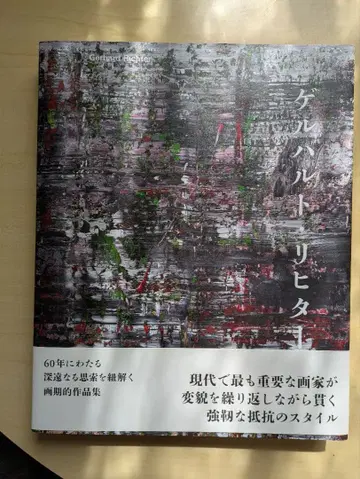 Gerhard Richter
ゲルハルト・リヒター
60年にわたる
深遠なる思索を紐解く
画期的作品集
現代で最も重要な画家が
変貌を繰り返しながら貫く
強靭な抵抗のスタイル